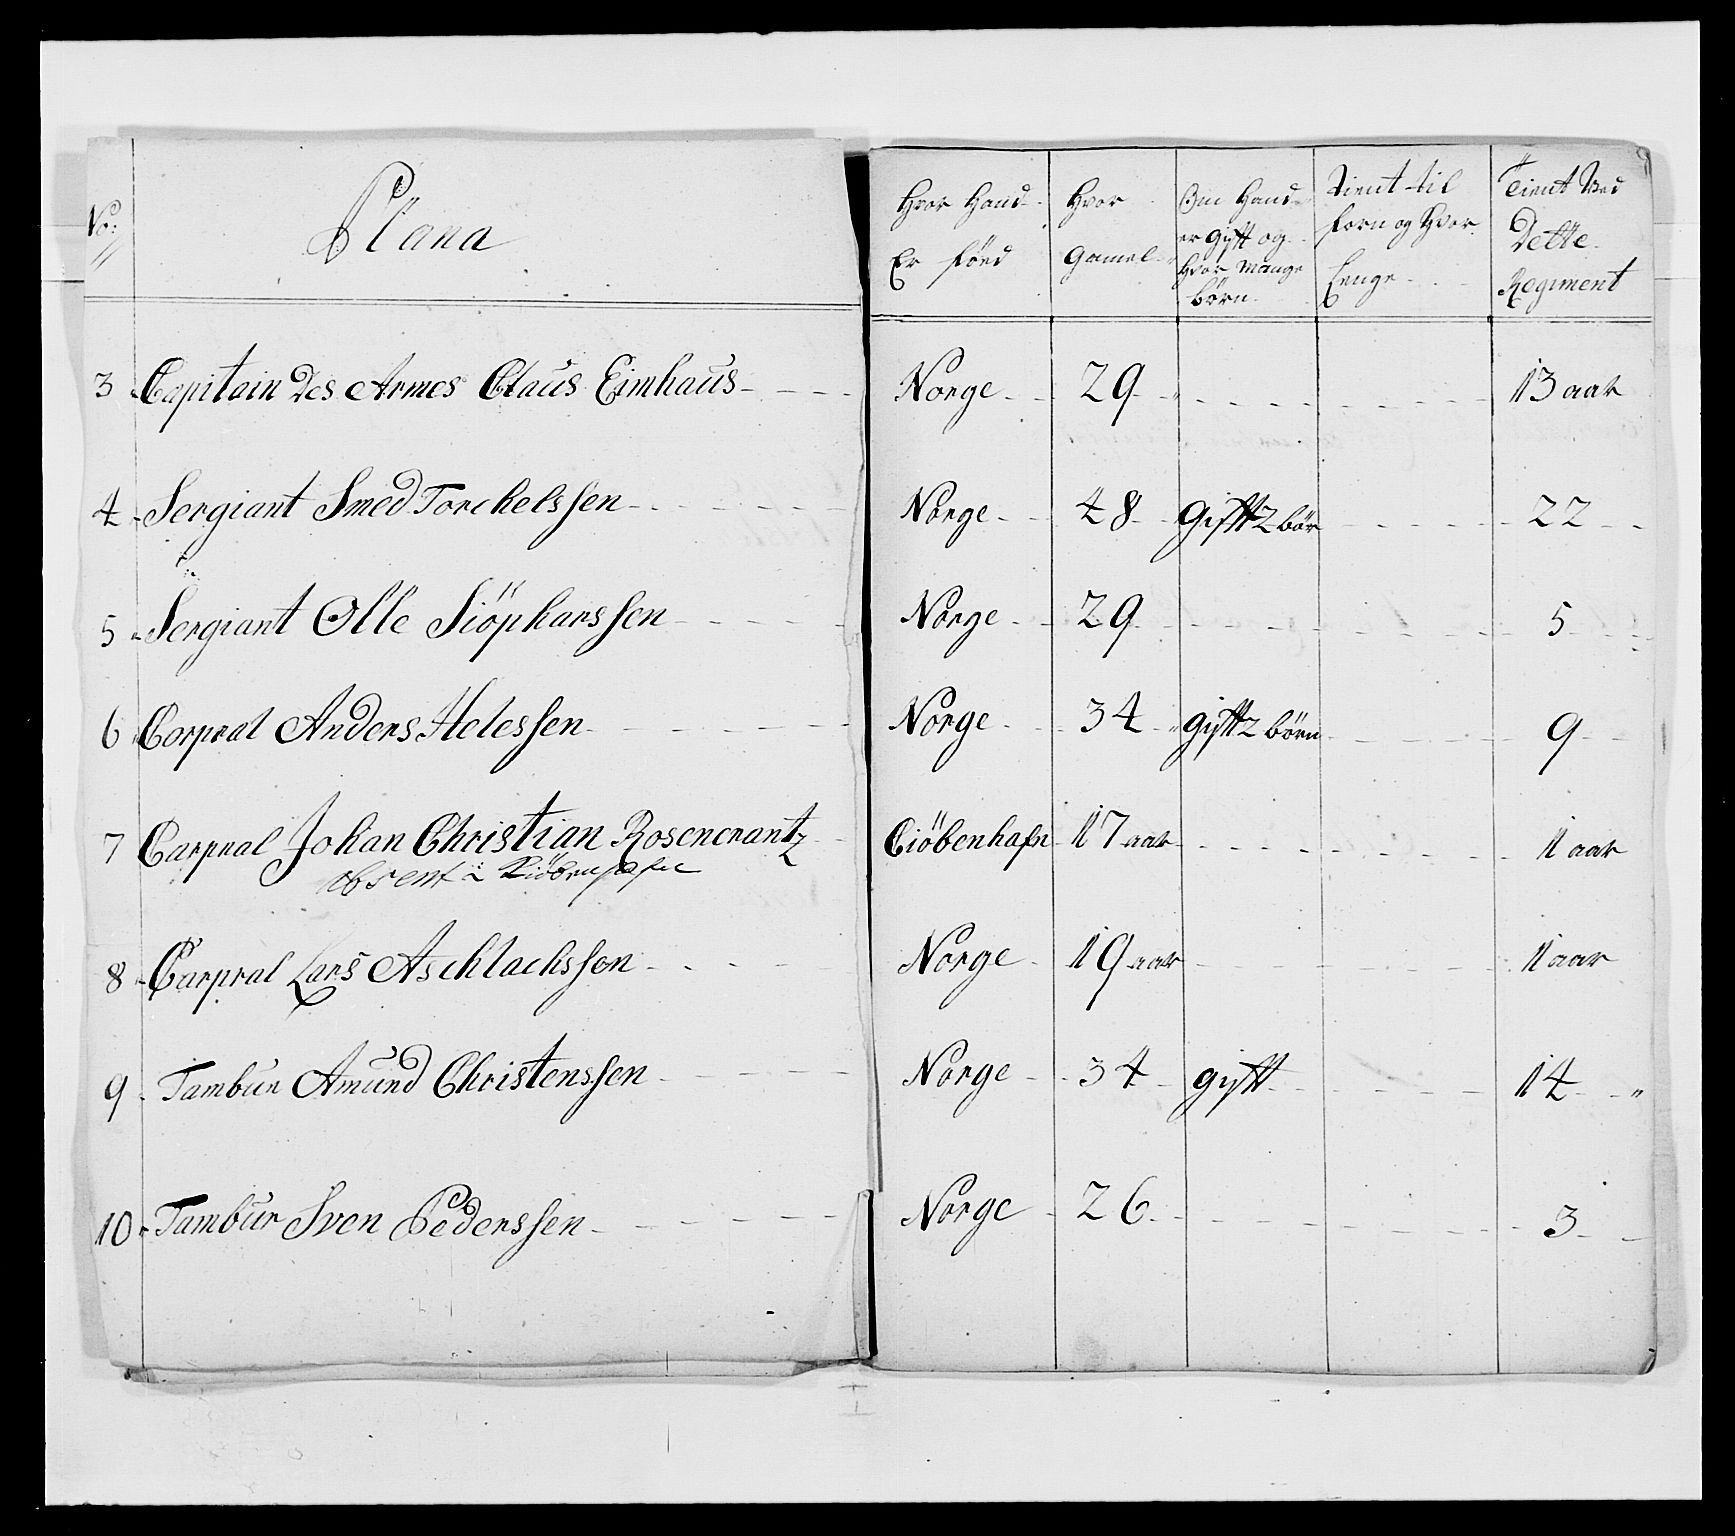 No: Plana Hvor Hand Er föed Hvor Gamel Om Hand er gift og Hvor Mange börn Tient til forn og Hvor Lenge Tient Ved Dette Regiment
3 Capitain Des Armes Claus Eimhaus Norge 29 13 aar
4 Sergiant Smed Torchelssen Norge 48 Gifft 2 bör 22
5 Sergiant Olle Siöpharssen Norge 29 5
6 Corpral Anders Helessen Norge 34 gifft 2 börn 9
7 Carpral Johan Christian Rosencrantz Ciöbenhafn 17 aar 1 aar
absent i Kiöbenhafn
8 Carpral Lars Aschlachssen Norge 19 aar 1 aar
9 Tambur Amund Christenssen Norge 34 gifft 14 "
10 Tambur Sven Pederssen Norge 26 3